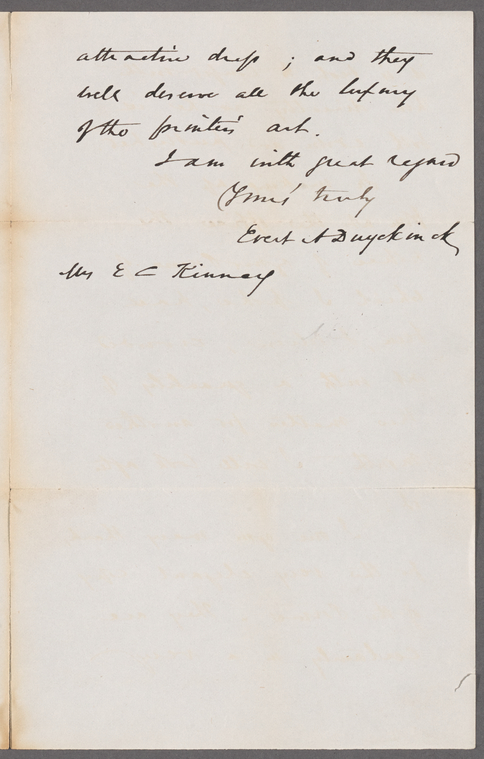 attractive dress ; and they
well deserve all the luxury
of the printers' art.
I am with great regard
Yours' truly
Evert A Duyckinck
Mrs E C Kinney